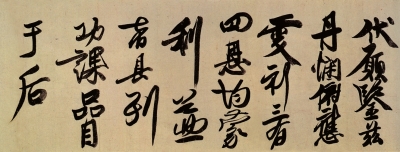 伏願鑒茲
丹悃俯應
虔祈三有
四恩均蒙
利益
者具列
功課品目
于后